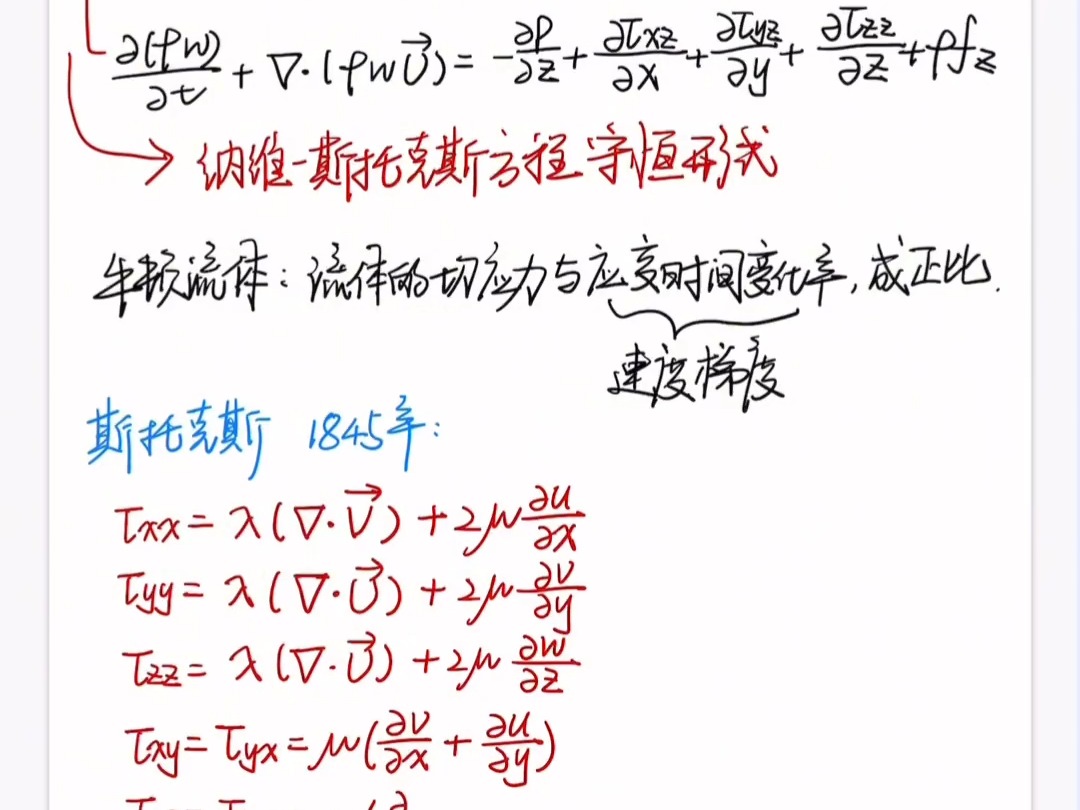 ∂(ρw)/∂t + ∇·(ρw\vec{U}) = -∂P/∂z + ∂τxz/∂x + ∂τyz/∂y + ∂τzz/∂z + ρfz
纳维-斯托克斯方程守恒形式
牛顿流体：流体的切应力与应变时间变化率，成正比.
速度梯度
斯托克斯 1845年：
τxx = λ(∇·\vec{V}) + 2μ ∂u/∂x
τyy = λ(∇·\vec{U}) + 2μ ∂v/∂y
τzz = λ(∇·\vec{U}) + 2μ ∂w/∂z
τxy = τyx = μ(∂v/∂x + ∂u/∂y)